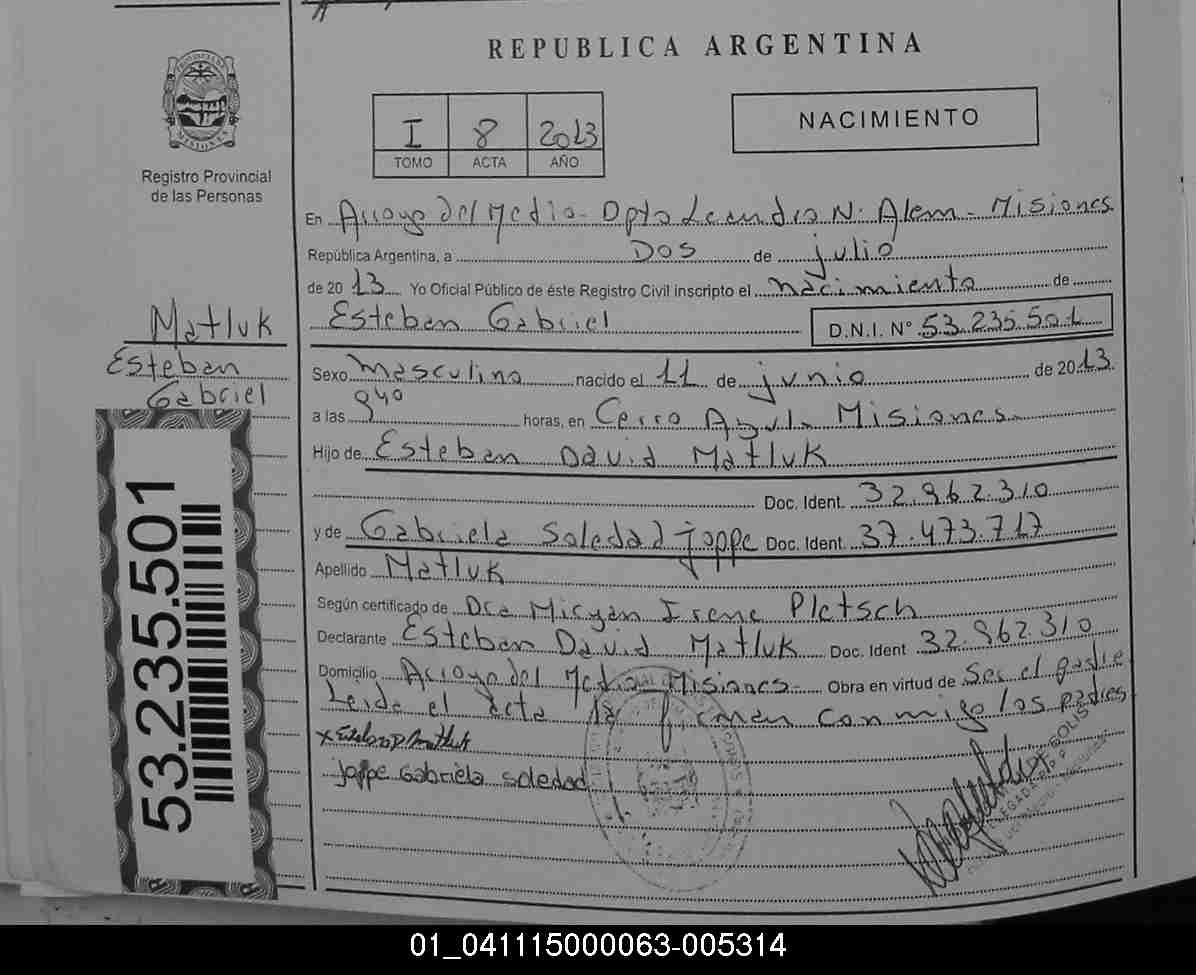 REPUBLICA ARGENTINA
PROVINCIA DE
MISIONES
Registro Provincial
de las Personas
I 8 2013
TOMO ACTA AÑO
NACIMIENTO
En Arroyo del Medio - Dpto Leandro N. Alem - Misiones
República Argentina, a Dos de julio
de 2013 Yo Oficial Público de éste Registro Civil inscripto el nacimiento de
Esteban Gabriel D.N.I. N° 53.235.501
Matluk
Esteban
Gabriel
Sexo Masculino nacido el 11 de junio de 2013
a las 940 horas, en Cerro Azul - Misiones
Hijo de Esteban David Matluk
Doc. Ident. 32.962.310
y de Gabriela Soledad joppe Doc. Ident. 37.473.717
Apellido Matluk
Según certificado de Dra Miryan Irene Pletsch
Declarante Esteban David Matluk Doc. Ident 32.962.310
Domicilio Arroyo del Medio - Misiones - Obra en virtud de Ser el padre
Leida el acta la firman conmigo los padres
joppe Gabriela Soledad
53.235.501
01_041115000063-005314